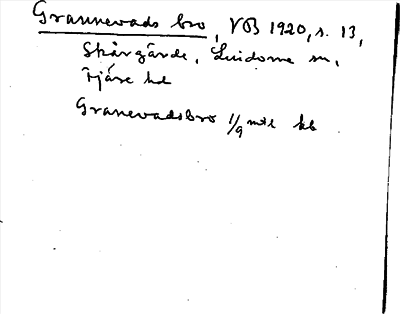 Grannevads bro, VB 1920, s. 13,
Skårgärde, Lindome sn,
Fjäre hd
Granevadsbro 1/9 mtl kb